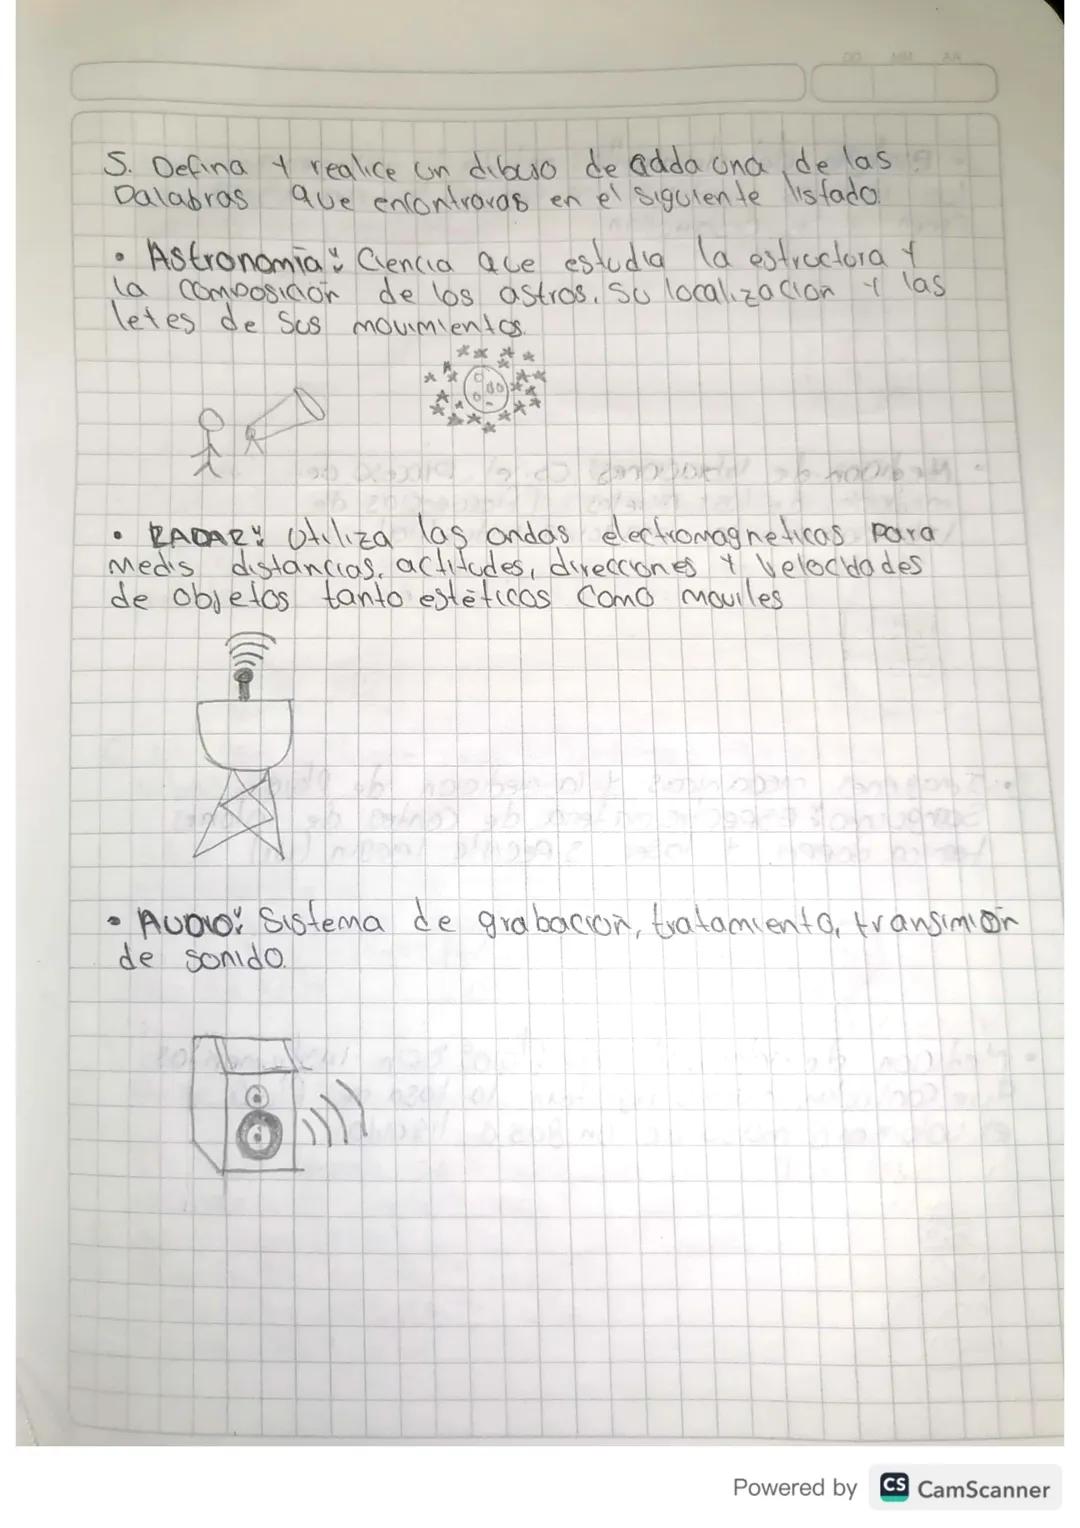 5. Defina y realice un dibujo de cadda una de las
Palabras que encontraras en el siguiente listado.
• Astronomía: Ciencia que estudia la estructura y
la composición de los astros. Su localización y las
letes de sus movimientos.
• RADAR: Utiliza las ondas electromagneticas para
Medis distancias, actitudes, direcciones y velocidades
de objetos tanto estéticos como moviles
• AUDIO: Sistema de grabación, tratamiento, transimión
de sonido.
Powered by CS CamScanner